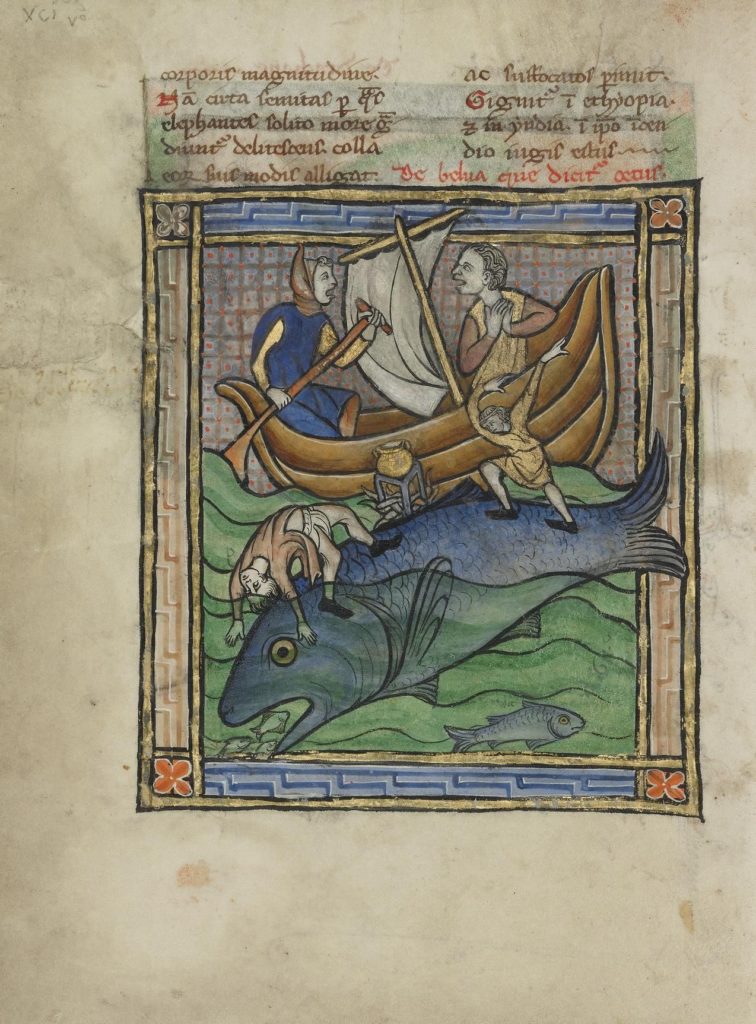 XCI vº
corporis magnitudine.
Nā circa semitas ꝑ q̄s
elephantes solito more g̃
diunt᷑ delitescens. colla
eoꝝ suis nodis alligat.
ac suffocatos ꝑimit.
Gignit᷑ ī ethyopia.
⁊ in yndia. ī ip̄o īcen
dio iugis estus.
De belua que dicit᷑ cetus.